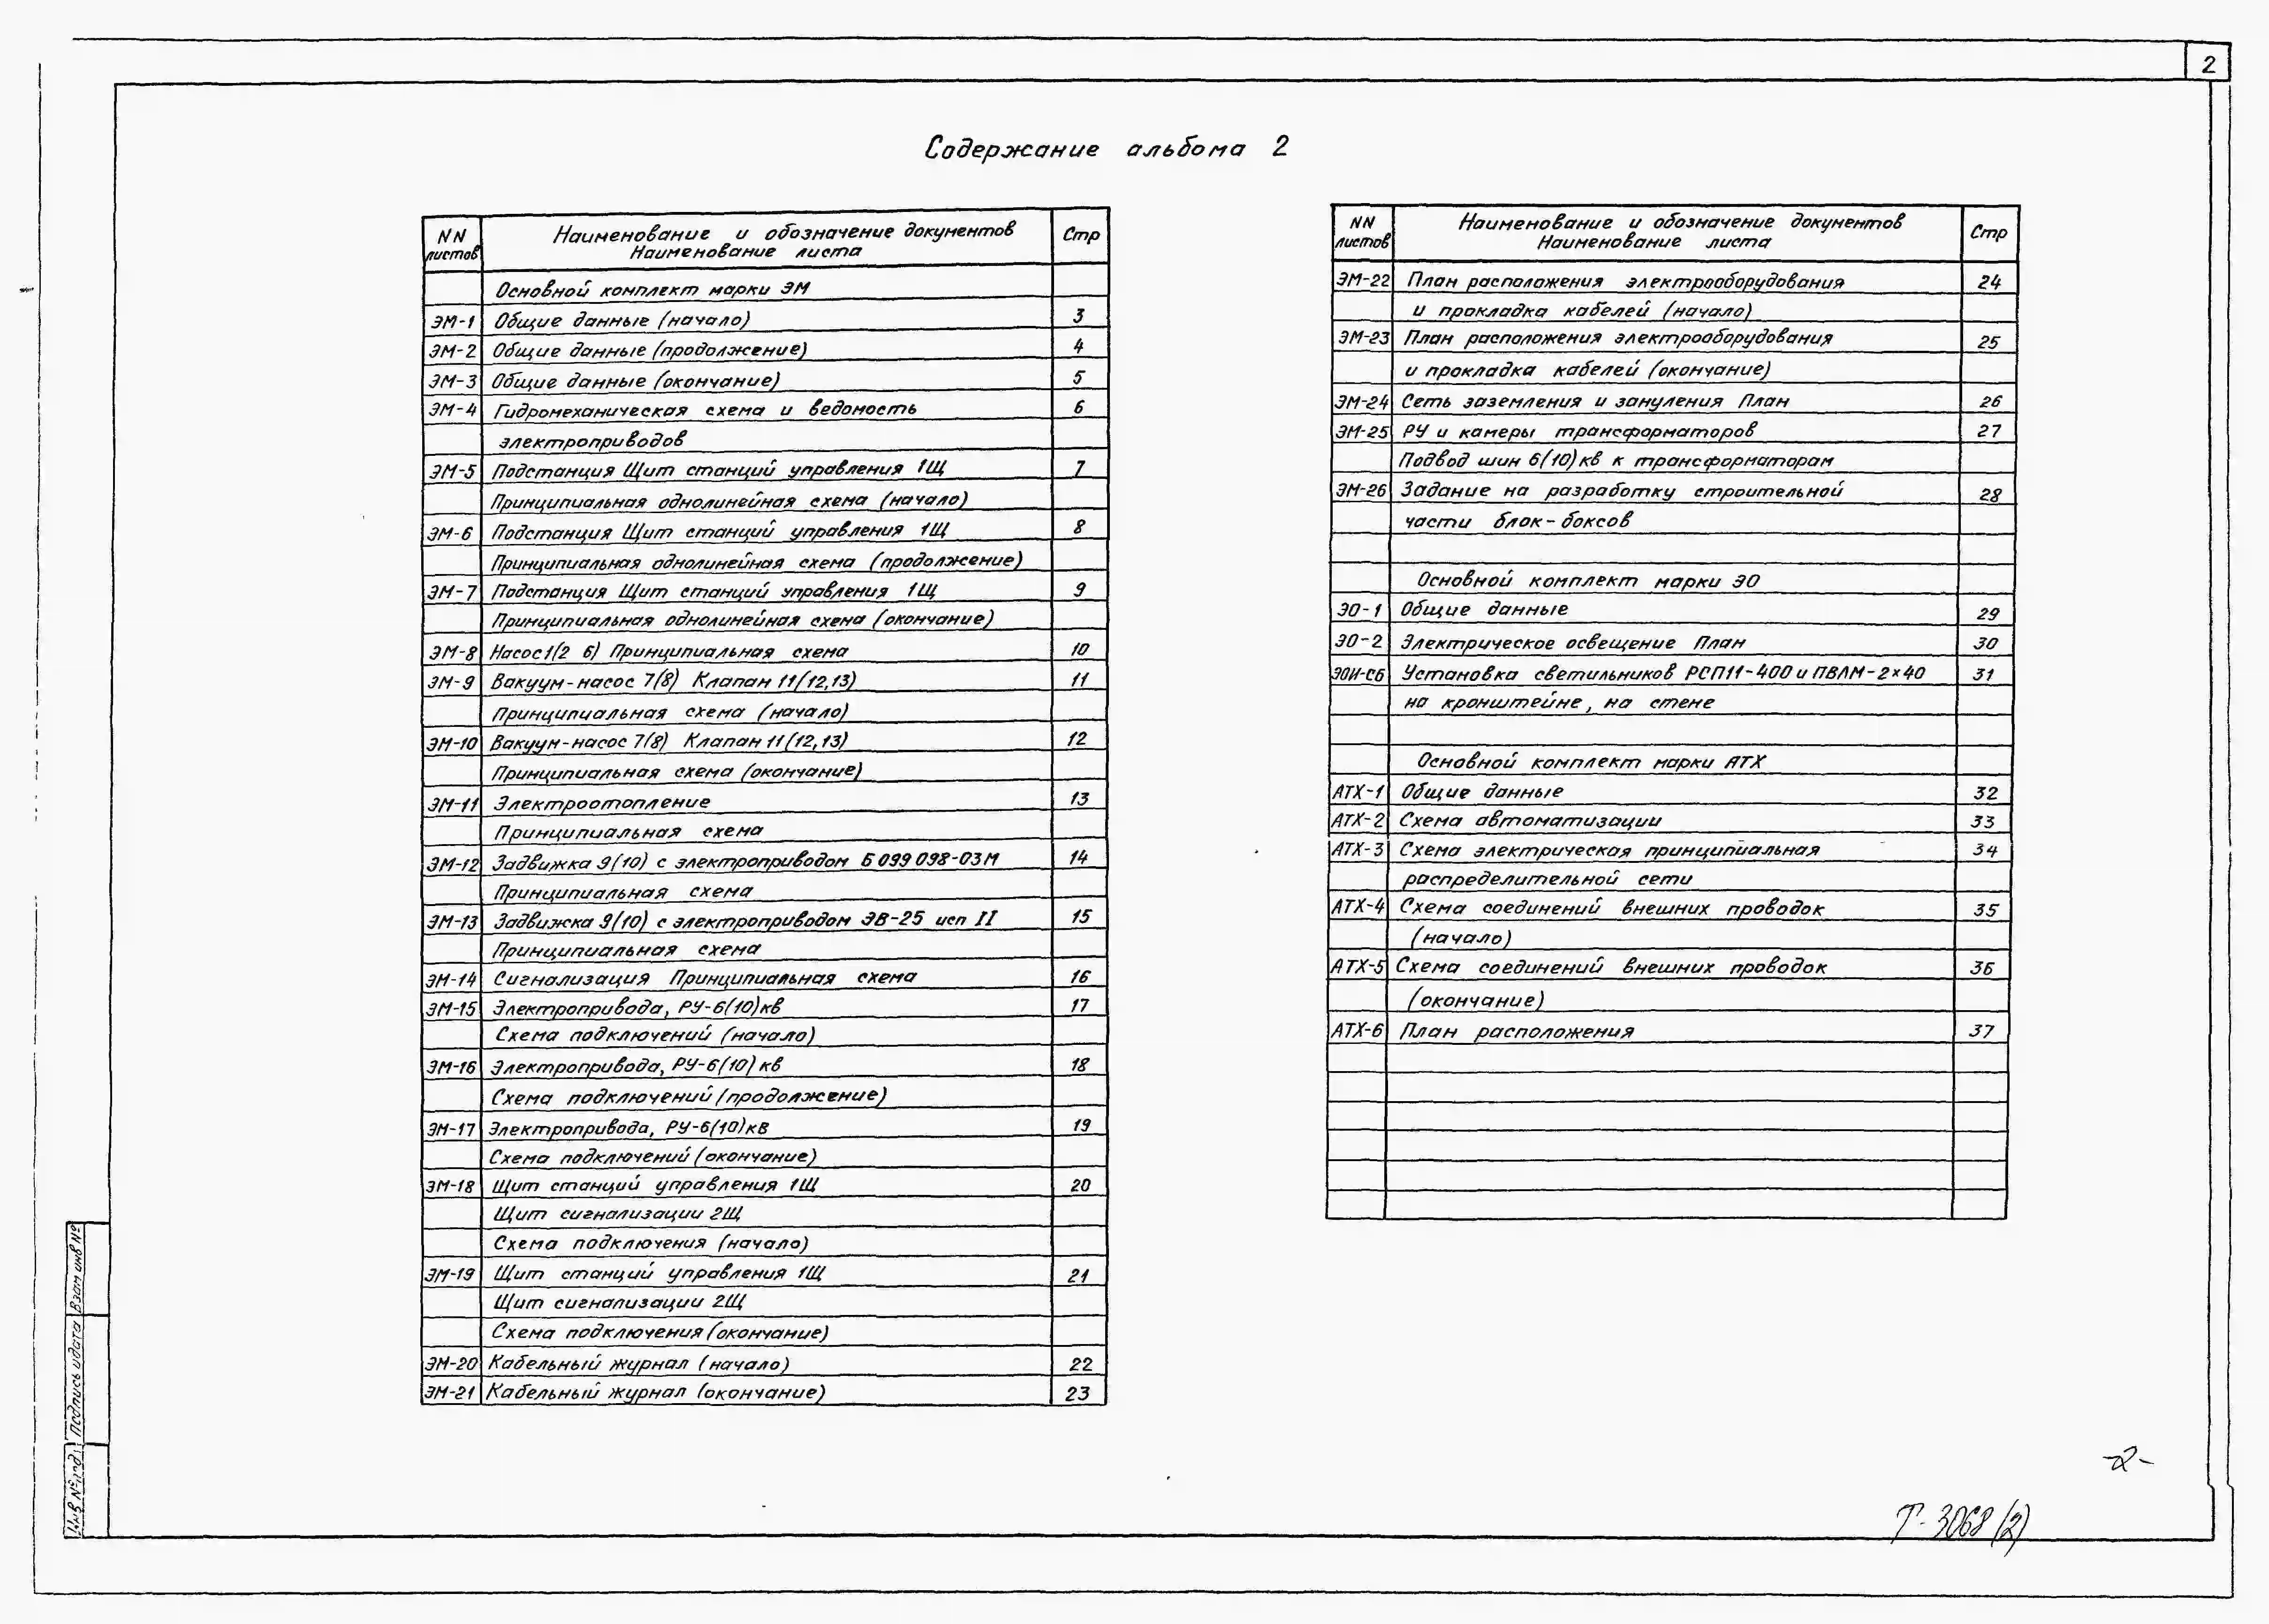 2
Содержание альбома 2
NN листов
Наименование и обозначение документов
Наименование листа
Стр
Основной комплект марки ЭМ
ЭМ-1 Общие данные (начало) 3
ЭМ-2 Общие данные (продолжение) 4
ЭМ-3 Общие данные (окончание) 5
ЭМ-4 Гидромеханическая схема и ведомость 6
электроприводов
ЭМ-5 Подстанция Щит станций управления 1Щ 7
Принципиальная однолинейная схема (начало)
ЭМ-6 Подстанция Щит станций управления 1Щ 8
Принципиальная однолинейная схема (продолжение)
ЭМ-7 Подстанция Щит станций управления 1Щ 9
Принципиальная однолинейная схема (окончание)
ЭМ-8 Насос 1(2 6) Принципиальная схема 10
ЭМ-9 Вакуум-насос 7(8) Клапан 11(12,13) 11
Принципиальная схема (начало)
ЭМ-10 Вакуум-насос 7(8) Клапан 11(12,13) 12
Принципиальная схема (окончание)
ЭМ-11 Электроотопление 13
Принципиальная схема
ЭМ-12 Задвижка 9(10) с электроприводом Б 099 098-03М 14
Принципиальная схема
ЭМ-13 Задвижка 9(10) с электроприводом ЭВ-25 исп II 15
Принципиальная схема
ЭМ-14 Сигнализация Принципиальная схема 16
ЭМ-15 Электропривода, РУ-6(10)кв 17
Схема подключений (начало)
ЭМ-16 Электропривода, РУ-6(10)кв 18
Схема подключений (продолжение)
ЭМ-17 Электропривода, РУ-6(10)кв 19
Схема подключений (окончание)
ЭМ-18 Щит станций управления 1Щ 20
Щит сигнализации 2Щ
Схема подключения (начало)
ЭМ-19 Щит станций управления 1Щ 21
Щит сигнализации 2Щ
Схема подключения (окончание)
ЭМ-20 Кабельный журнал (начало) 22
ЭМ-21 Кабельный журнал (окончание) 23
NN листов
Наименование и обозначение документов
Наименование листа
Стр
ЭМ-22 План расположения электрооборудования 24
и прокладка кабелей (начало)
ЭМ-23 План расположения электрооборудования 25
и прокладка кабелей (окончание)
ЭМ-24 Сеть заземления и зануления План 26
ЭМ-25 РУ и камеры трансформаторов 27
Подвод шин 6(10)кв к трансформаторам
ЭМ-26 Задание на разработку строительной 28
части блок-боксов
Основной комплект марки ЭО
ЭО-1 Общие данные 29
ЭО-2 Электрическое освещение План 30
ЭОИ-СБ Установка светильников РСП11-400 и ПВЛМ-2×40 31
на кронштейне, на стене
Основной комплект марки АТХ
АТХ-1 Общие данные 32
АТХ-2 Схема автоматизации 33
АТХ-3 Схема электрическая принципиальная 34
распределительной сети
АТХ-4 Схема соединений внешних проводок 35
(начало)
АТХ-5 Схема соединений внешних проводок 36
(окончание)
АТХ-6 План расположения 37
Взам инв №
Подпись и дата
Инв № подл
-2-
Т-3068 (2)